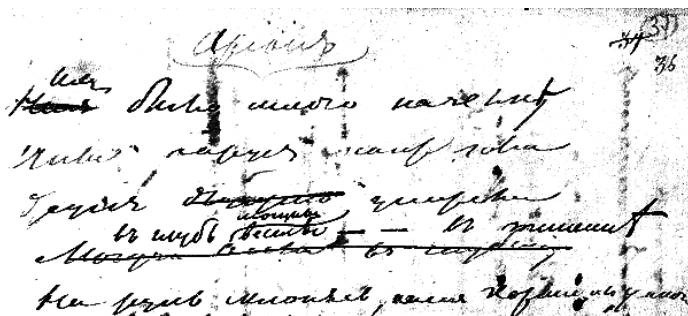 (37)
Аріонъ 34
36
Ихъ
Насъ было много на челнѣ
Иные парусъ напрягали
Другіе дружно упирали
мощны
въ глубь веслы — — въ тишинѣ
На руль склонясь, нашъ кормщикъ умной